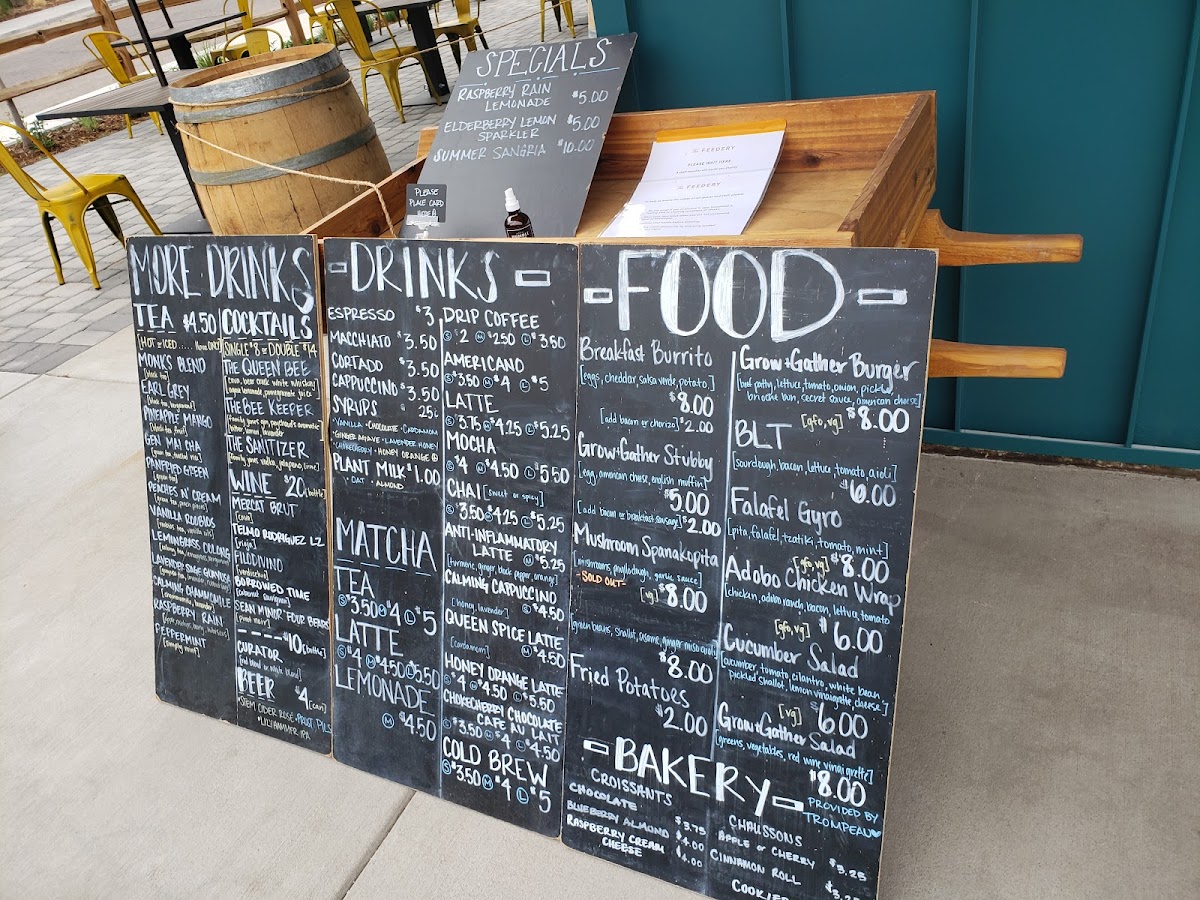 SPECIALS
RASPBERRY RAIN
LEMONADE $5.00
ELDERBERRY LEMON
SPARKLER $5.00
SUMMER SANGRIA $10.00
PLEASE
PLACE CARD
HERE
THE FEEDERY
PLEASE WAIT HERE
THE FEEDERY
MORE DRINKS
TEA $4.50
MONKS BLEND
[black tea]
EARL GREY
PINEAPPLE MANGO
GEN MAI CHA
PANFRIED GREEN
[green tea]
PEACHES N' CREAM
VANILLA ROOIBOS
LEMONGRASS OOLONG
LAVENDER SAGE GUNPOWDER
CALMING CHAMOMILE
RASPBERRY RAIN
PEPPERMINT
[simply mint]
COCKTAILS
SINGLE $8 = DOUBLE $14
THE QUEEN BEE
THE BEE KEEPER
THE SANITIZER
WINE $20 [bottle]
MERCAT BRUT
[cava]
TELMO RODRIGUEZ LZ
[rioja]
FILODIVINO
[verdicchio]
BORROWED TIME
[cabernet sauvignon]
SEAN MINOR FOUR BEARS
[pinot noir]
$10 [bottle]
CURATOR
[red blend or white blend]
BEER $4 [can]
STEM CIDER ROSÉ • PROST PILS
• LILYHAMMER IPA
-DRINKS-
ESPRESSO $3
MACCHIATO $3.50
CORTADO 3.50
CAPPUCCINO $3.50
SYRUPS 25¢
VANILLA • CHOCOLATE • CARDAMOM
• GINGER AGAVE • LAVENDER HONEY
• CHOKECHERRY • HONEY ORANGE
PLANT MILK $1.00
• OAT • ALMOND
MATCHA
TEA
S $3.50 M $4 L $5
LATTE
S $4 M $4.50 L $5.50
LEMONADE
M $4.50
DRIP COFFEE
S $2 M $2.50 L $3.50
AMERICANO
S $3.50 M $4 L $5
LATTE
S $3.75 M $4.25 L $5.25
MOCHA
S $4 M $4.50 L $5.50
CHAI [sweet or spicy]
S $3.50 M $4.25 L $5.25
ANTI-INFLAMMATORY
LATTE M $5.25
[turmeric, ginger, black pepper, orange]
CALMING CAPPUCCINO
[honey, lavender] S $4.50
QUEEN SPICE LATTE
[cardamom] M $4.50
HONEY ORANGE LATTE
S $4 M $4.50 L $5.50
CHOKECHERRY CHOCOLATE
CAFE AU LAIT
S $3.50 M $4 L $4.50
COLD BREW
S $3.50 M $4 L $5
-FOOD-
Breakfast Burrito
[eggs, cheddar, salsa verde, potato]
$8.00
[add bacon or chorizo] $2.00
Grow+Gather Stubby
[egg, american cheese, english muffin]
$5.00
[add bacon or breakfast sausage] $2.00
Mushroom Spanakopita
[mushrooms, phyllo dough, garlic sauce]
-SOLD OUT-
[vg] $8.00
[green beans, shallot, sesame, ginger miso aioli]
$8.00
Fried Potatoes
$2.00
Grow+Gather Burger
[beef patty, lettuce, tomato, onion, pickle,
brioche bun, secret sauce, american cheese]
[gfo, vg] $8.00
BLT
[sourdough, bacon, lettuce, tomato, aioli]
$6.00
Falafel Gyro
[pita, falafel, tzatiki, tomato, mint]
[gfo, vg] $8.00
Adobo Chicken Wrap
[chicken, adobo ranch, bacon, lettuce, tomato
[gfo, vg] $6.00
Cucumber Salad
[cucumber, tomato, cilantro, white bean,
pickled shallot, lemon vinaigrette cheese]
[vg] $6.00
Grow+Gather Salad
[greens, vegetables, red wine vinaigrette]
$8.00
-BAKERY-
PROVIDED BY
TROMPEAU
CROISSANTS
CHOCOLATE $3.75
BLUEBERRY ALMOND $4.00
RASPBERRY CREAM
CHEESE $4.00
CHAUSSONS
APPLE OR CHERRY $3.25
CINNAMON ROLL $3.25
COOKIES